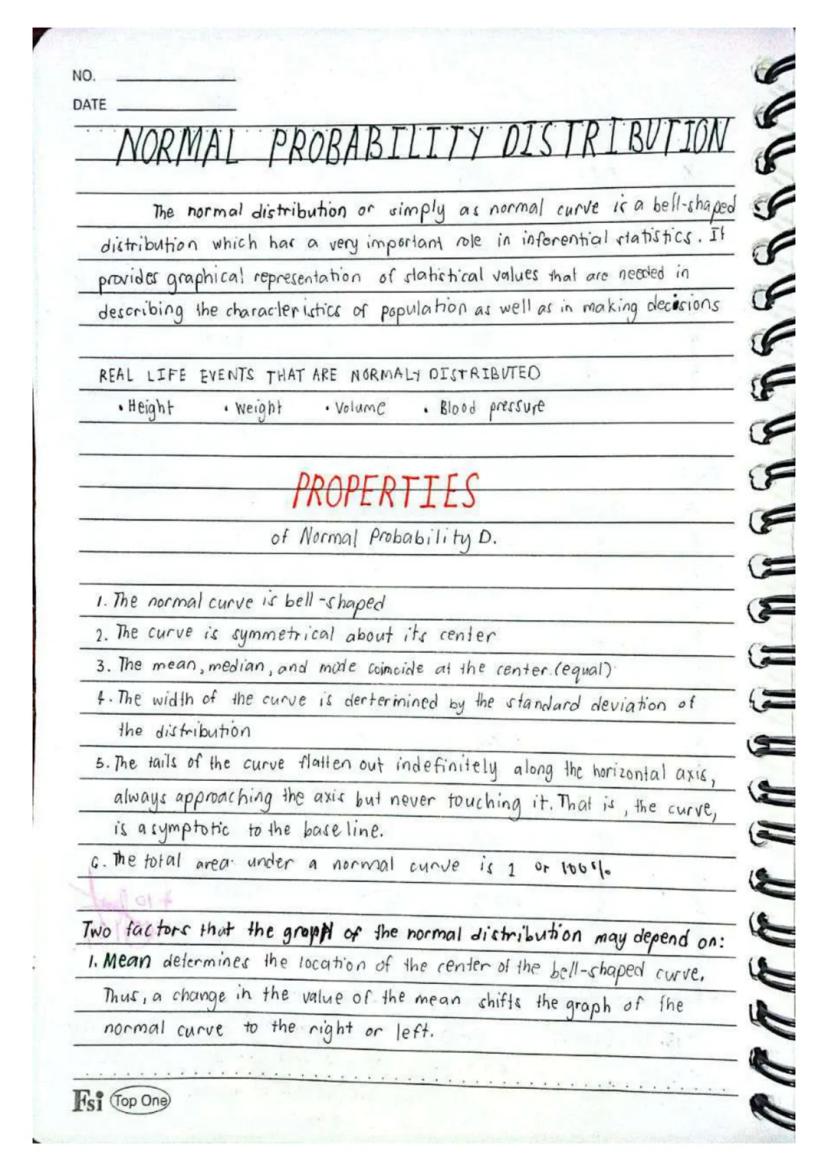 NO.
DATE
NORMAL PROBABILITY DISTRIBUTION
The normal distribution or simply as normal curve is a bell-shaped
distribution which has a very important role in inferential statistics. It
provides graphical representation of statistical values that are needed in
describing the characteristics of population as well as in making decisions
REAL LIFE EVENTS THAT ARE NORMALY DISTRIBUTED
• Height • Weight • Volume • Blood pressure
PROPERTIES
of Normal Probability D.
1. The normal curve is bell-shaped
2. The curve is symmetrical about its center
3. The mean, median, and mode coincide at the center. (equal)
4. The width of the curve is dertermined by the standard deviation of
the distribution
5. The tails of the curve flatten out indefinitely along the horizontal axis,
always approaching the axis but never touching it. That is, the curve,
is asymptotic to the base line.
6. The total area under a normal curve is 1 or 100%
Two factors that the graph of the normal distribution may depend on:
1. Mean determines the location of the center of the bell-shaped curve.
Thus, a change in the value of the mean shifts the graph of the
normal curve to the right or left.
Fsi Top One